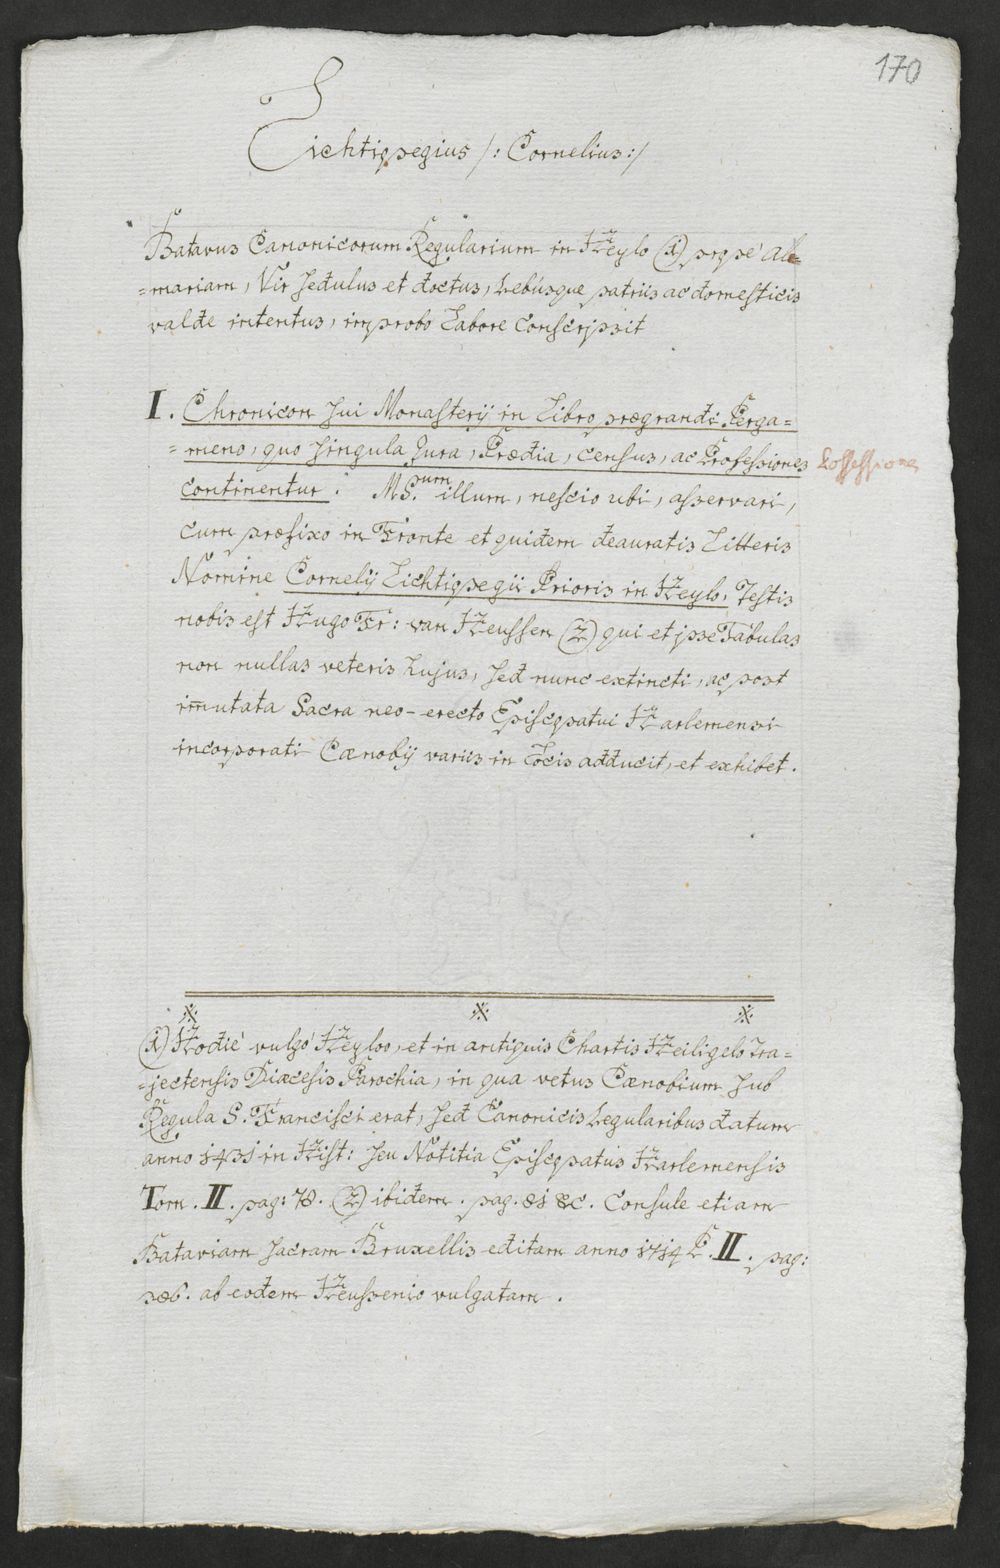 170
Lichtipsegius /: Cornelius :/
Batavus Canonicorum Regularium in Heylo (1) prope Alc=
=mariam, Vir sedulus et doctus, Rebusque patriis ac domesticis
valde intentus, improbo Labore conscripsit
I. Chronicon sui Monasterij in Libro prægrandi Perga=
=meno, quo singula Jura, Prædia, census, ac Professiones
Possessiones
continentur. M.S.num illum, nescio ubi, asservari,
cum præfixo in Fronte et quidem deauratis Litteris
Nomine Cornelij Lichtipsegii Prioris in Heylo, Testis
nobis est Hugo Fr: van Heussen (2) qui et ipse Tabulas
non nullas veteris hujus, sed nunc extincti, ac post
imutata Sacra neo-erecto Episcopatui Harlemensi
incorporati Cænobij variis in Locis adducit, et exhibet.
(1) Hodie vulgo Heyloo, et in antiquis Chartis Heiligelo Tra=
=jectensis Diæcesis Parochia, in qua vetus Cænobium sub
Regula S. Francisci erat, sed Canonicis Regularibus datum
anno 1431 in Hist: seu Notitia Episcopatus Harlemensis
Tom. II. pag: 78. (2) ibidem. pag. 81 &c. Consule etiam
Bataviam sacram Bruxellis editam anno 1714 P. II. pag:
ab eodem Heussenio vulgatam.